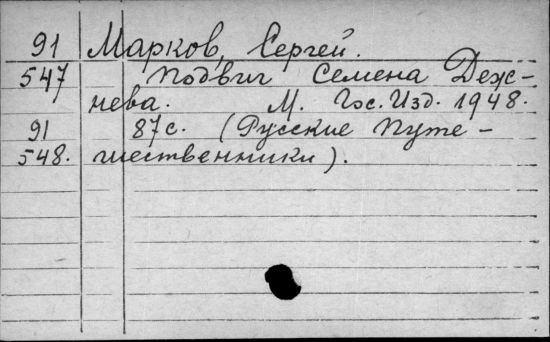 91 Марков, Сергей.
547 Подвиг Семена Деж-
нева. М. Гос. Изд. 1948.
91 87с. (Русские Путе-
548. шественники).